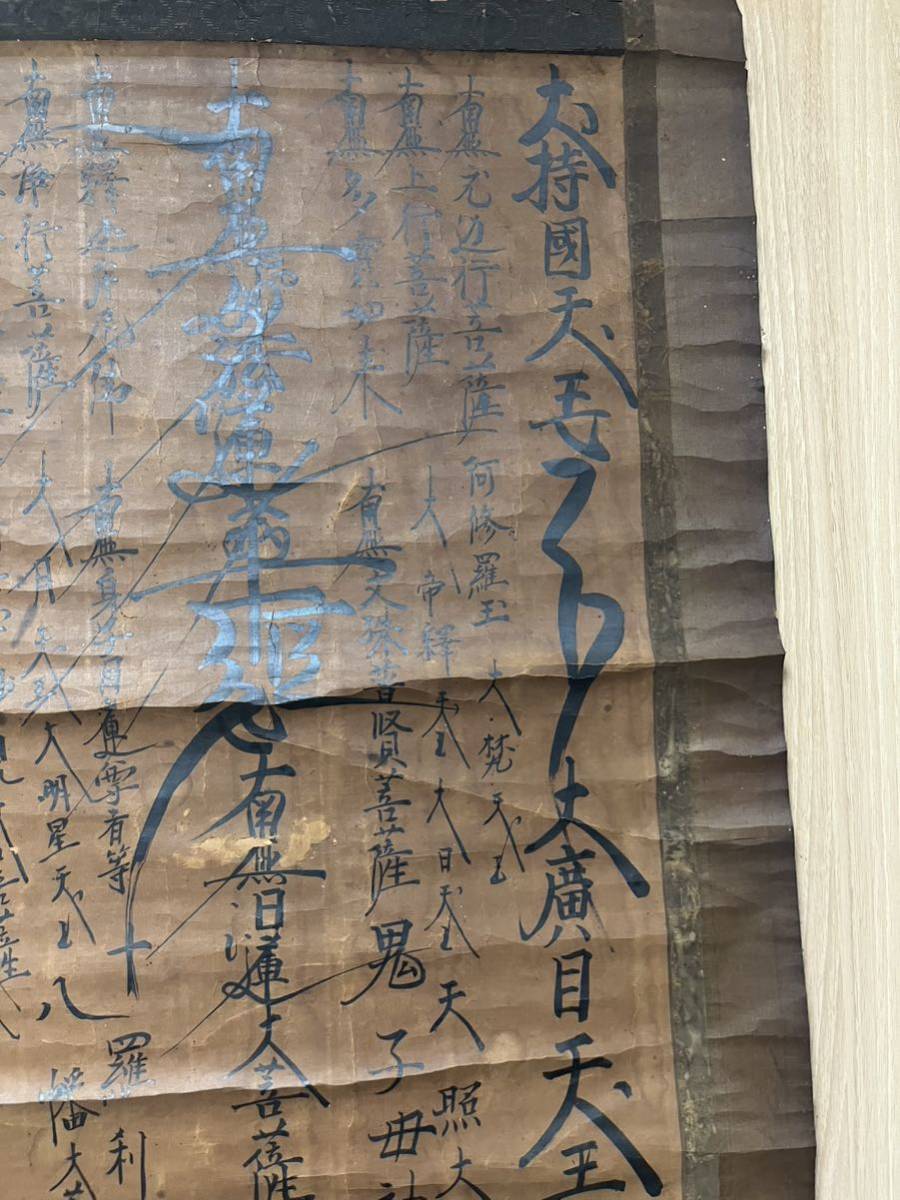 大持國天王
大廣目天王
南無无边行菩薩
阿修羅王
大梵天王
南無上行菩薩
大帝釋天王
大日天王
天照大
南無多寳如来
南無文殊普賢菩薩
鬼子母神
南無妙法蓮華經
南無日蓮大菩薩
南無釋迦牟尼佛
南無身子目連等
十羅刹
南無浄行菩薩
大月天王
大明星天王
八幡大菩